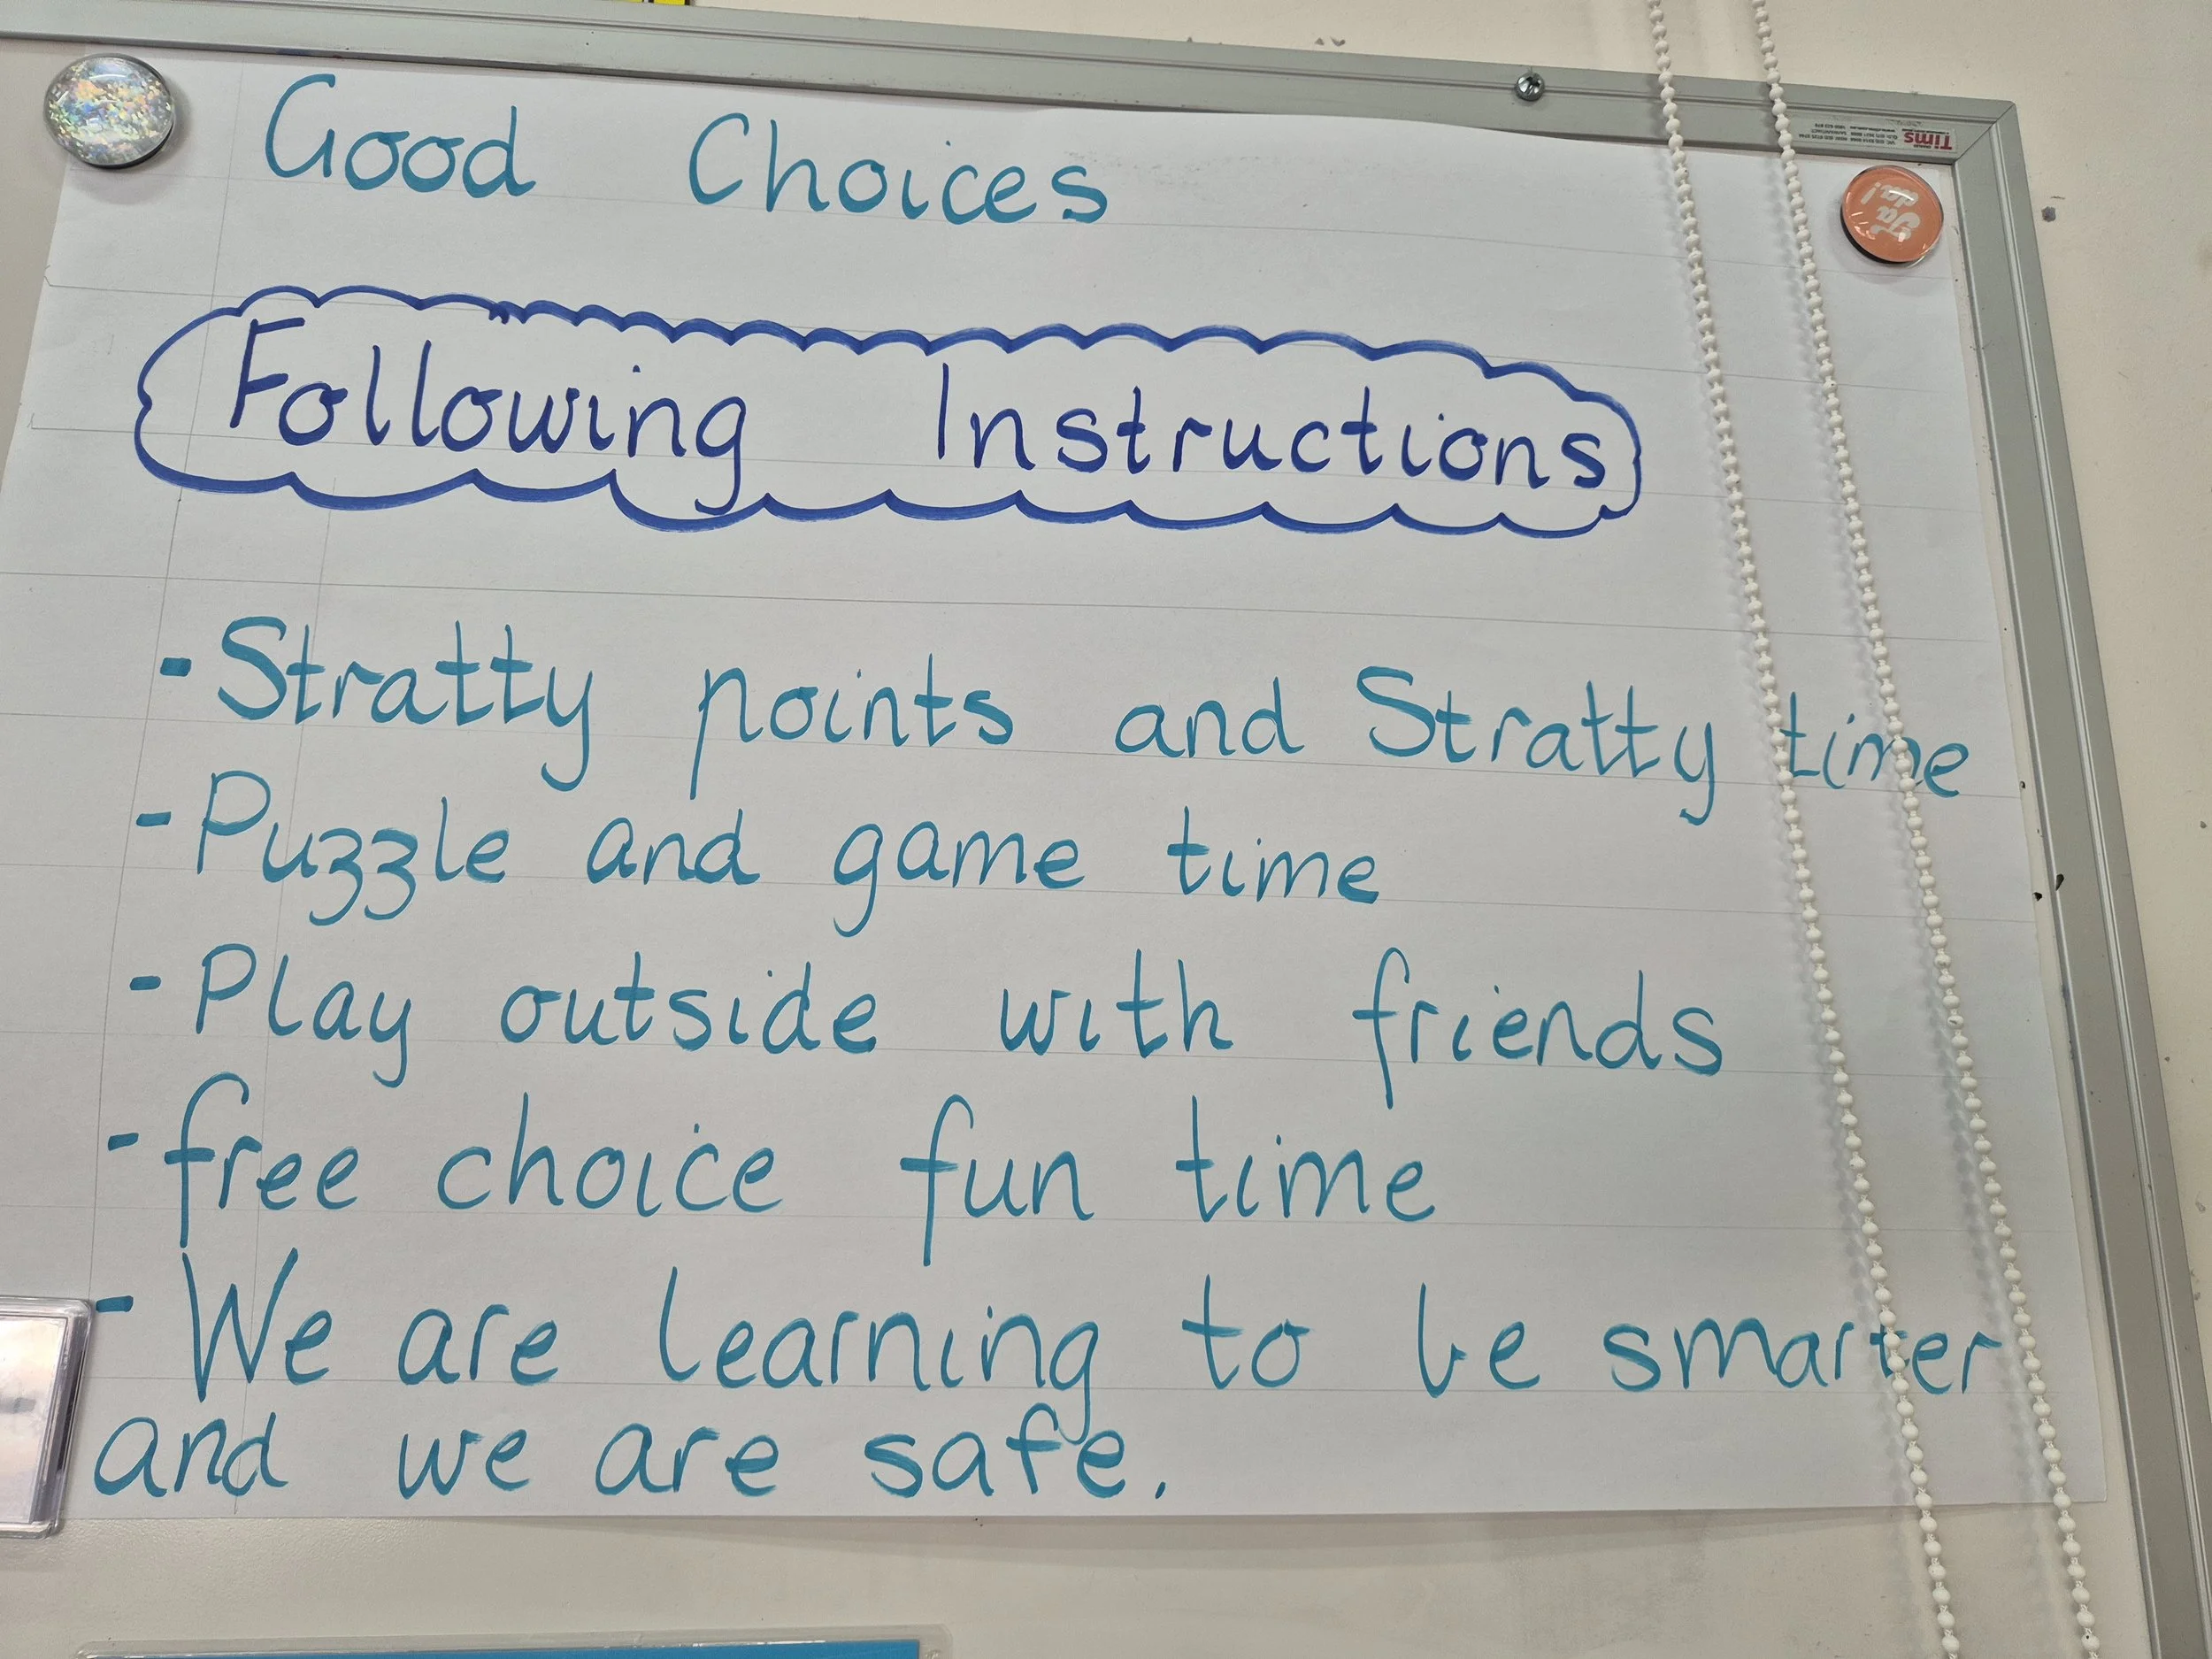 Good Choices
Following Instructions
- Stratty points and Stratty time
- Puzzle and game time
- Play outside with friends
- free choice fun time
- We are learning to be smarter
and we are safe.
Ta
da!
Tims